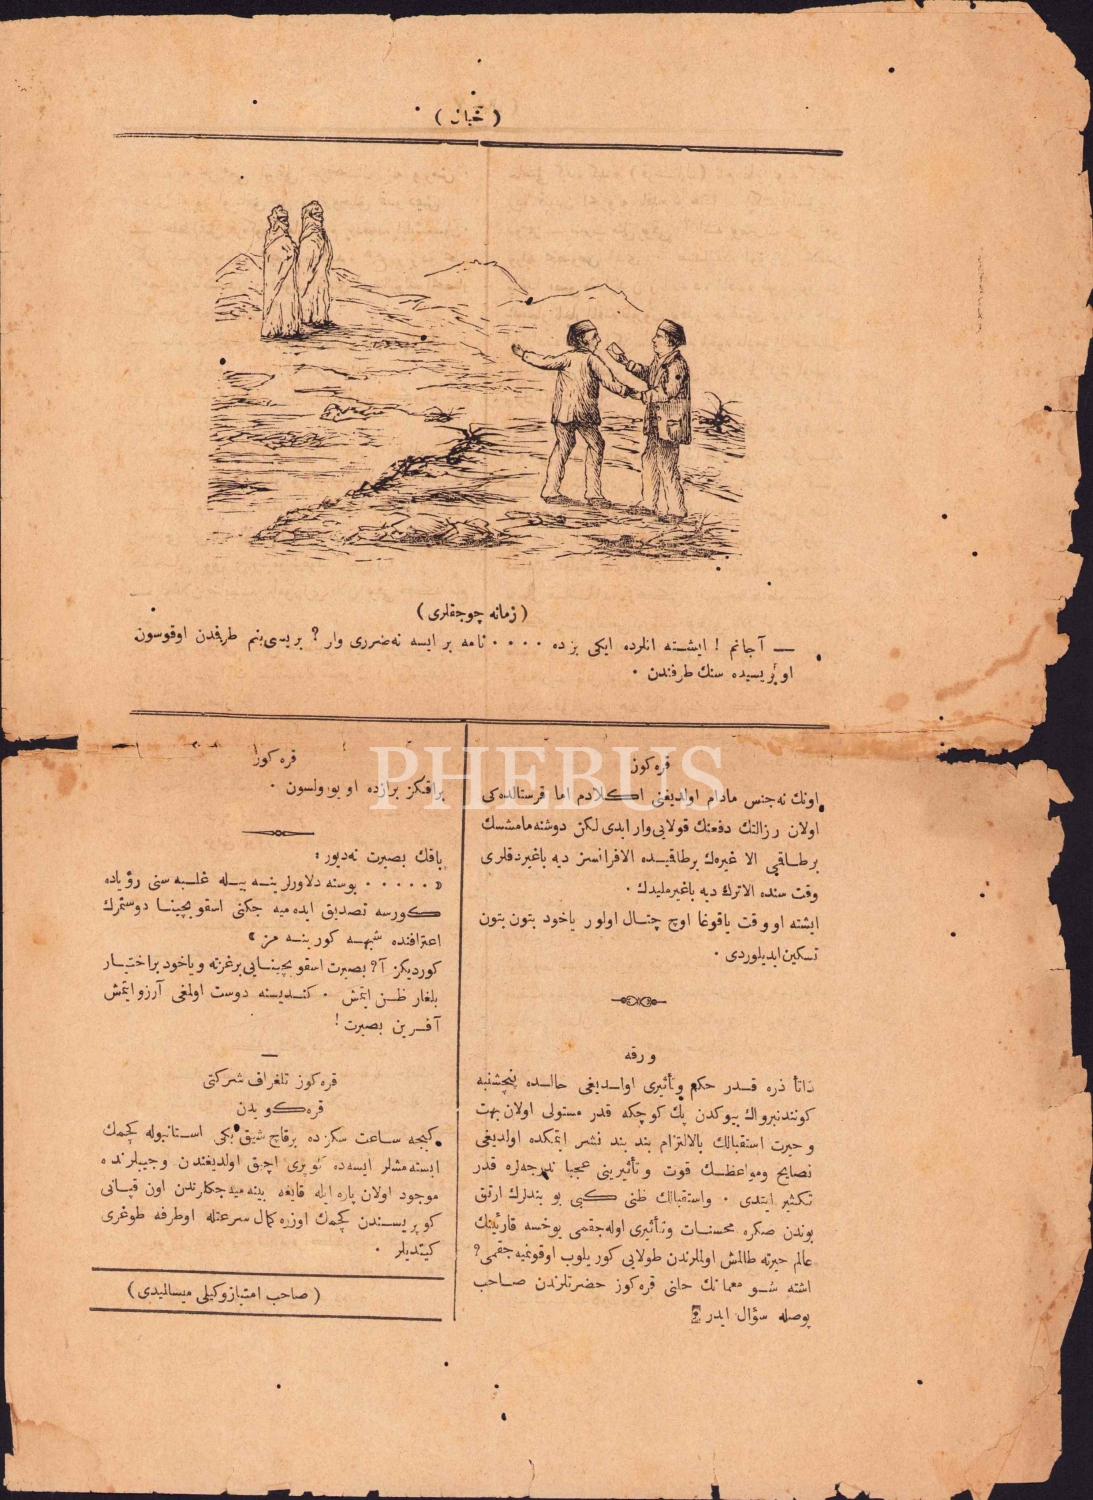 ( زمانه چوجقلری )
— آجانم ! ایشته انلرده ایکی بزده . . . . نامه بر ایسه نه‌ضرری وار ? بریسی بنم طرفدن اوقوسون
اوبریسیده سنك طرفندن .
قره کوز
اونك نه‌جنس مادام اولدیغنی اکلادم اما قرستالده‌کی
اولان رزالتك دفعنك قولایی وار ایدی لکن دوشنه‌مامشسك
برطاقی الا غیره‌ك برطاقیده الافرانسز دیه باغیردقلری
وقت سنده الاترك دیه باغیرملیدك .
ایشته او وقت یاقوغا اوچ چتال اولور یاخود بتون بتون
تسکین ایدیلوردی .
ورقه
ذاتاً ذره قدر حکم وتأثیری اولدیغی حالده پنچشنبه
کونندنبرو اك بیوکدن پك کوچکه قدر مستولی اولان بهت
وحیرت استقبالك بالالتزام بند بند نشر ایتمکده اولدیغی
نصایح ومواعظك قوت وتأثیرینی عجبا نه‌درجه‌لره قدر
تکثیر ایتدی . واستقبالك ظنی کبی بو بندلرك ارتق
بوندن صکره محسنات وتأثیری اوله‌جقمی یوخسه قارئینك
عالم حیرته طالمش اولملرندن طولایی کوریلوب اوقونمیه‌جقمی ?
اشته شو معمانك حلنی قره کوز حضرتلرندن صاحب
بوصله سؤال ایدر
قره کوز
براقکز برازده او یوولسون .
باقك بصیرت نه‌دیور :
« . . . . . بوسنه دلاورلرینه بیله غلبه سنی رؤیاده
کورسه تصدیق ایده‌میه جکنی اسقوبچینا دوستمزك
اعترافنده شبهه کورینه‌مز »
کوردیکز آ? بصیرت اسقوبچینایی برغزته ویاخود براختیار
بلغار ظن ایتمش . کندیسنه دوست اولمغی آرزو ایتمش
آفرین بصیرت !
قره کوز تلغراف شرکتی
قره‌کویدن
کیجه ساعت سکزده برقاچ شیق بکی استانبوله کچمك
ایسته‌مشلر ایسه‌ده کوپری اچیق اولدیغندن وجیبلرنده
موجود اولان پاره ایله قایغه بینه‌میه‌جکلرندن اون قپانی
کوپریسندن کچمك اوزره کمال سرعتله اوطرفه طوغری
کیتدیلر .
( صاحب امتیاز وکیلی میسالیدی )
PHEBUS